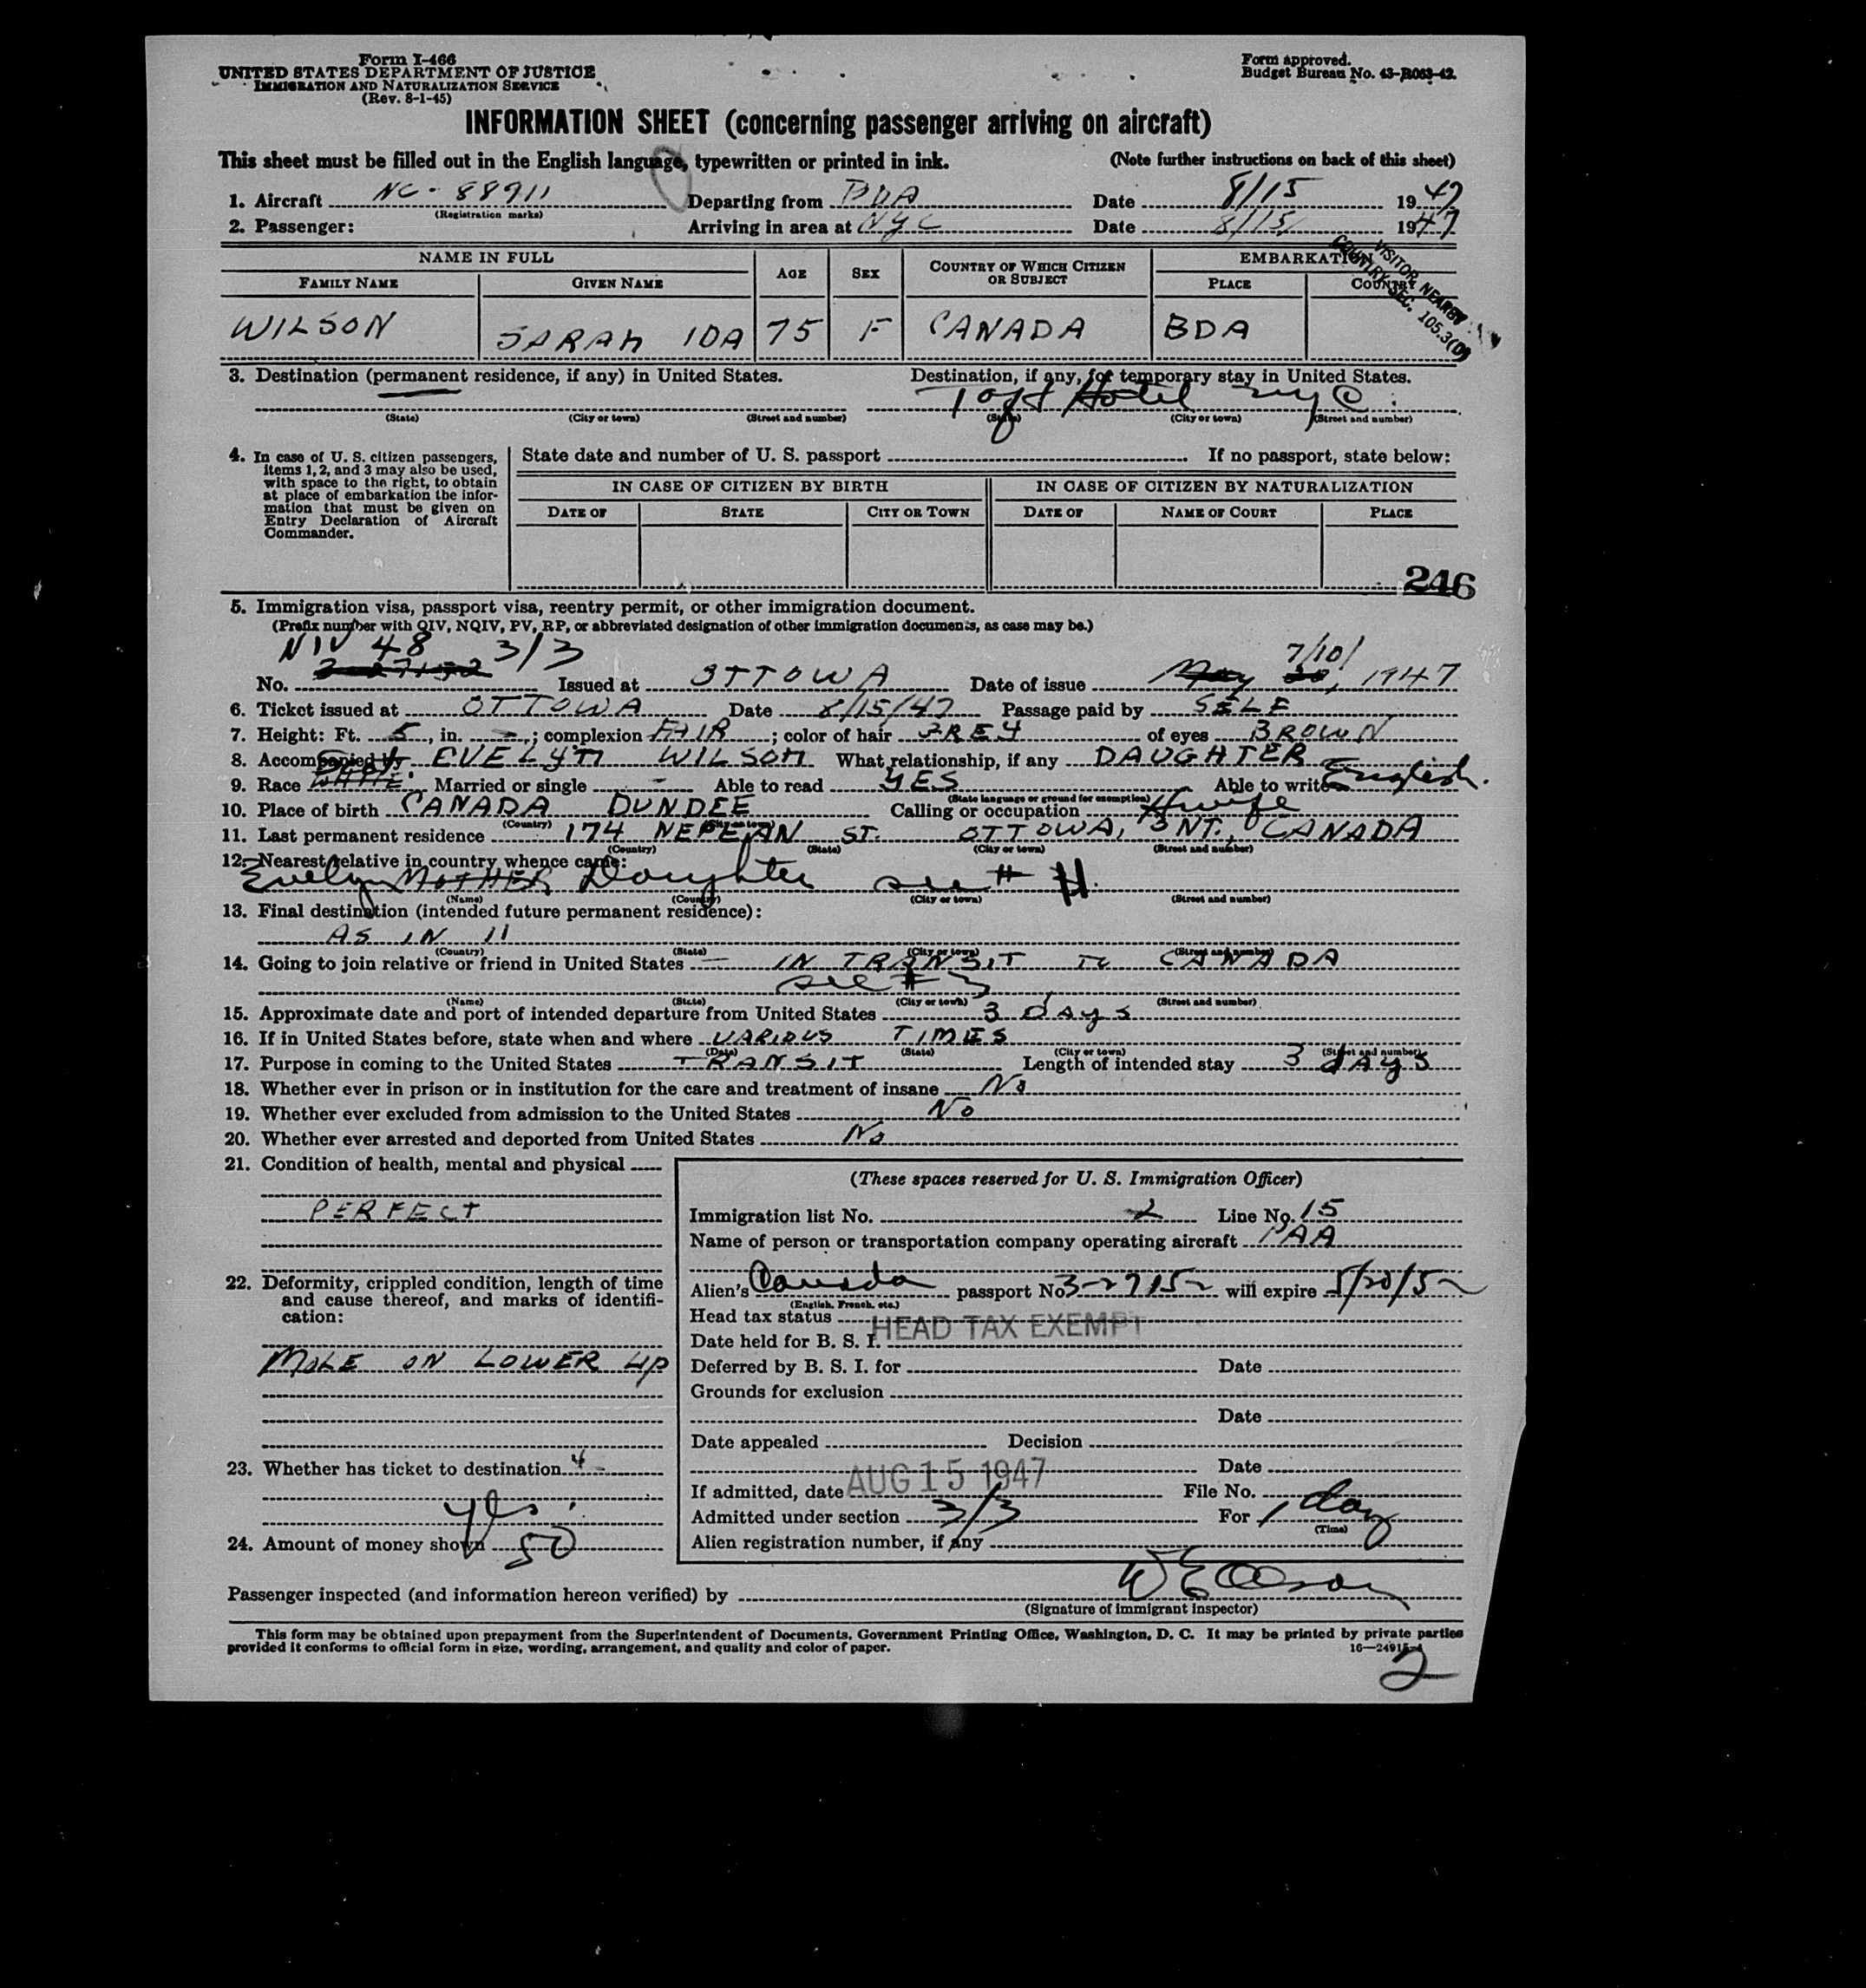 Form I-466
UNITED STATES DEPARTMENT OF JUSTICE
IMMIGRATION AND NATURALIZATION SERVICE
(Rev. 8-1-45)
Form approved.
Budget Bureau No. 43-R063-42.
INFORMATION SHEET (concerning passenger arriving on aircraft)
This sheet must be filled out in the English language, typewritten or printed in ink. (Note further instructions on back of this sheet)
1. Aircraft NC-88911 Departing from BDA Date 8/15 1947
(Registration marks)
2. Passenger: Arriving in area at NYC Date 8/15/ 1947
VISITOR NEARBY
COUNTRY SEC. 105.3(D)
NAME IN FULL AGE SEX COUNTRY OF WHICH CITIZEN OR SUBJECT EMBARKATION
FAMILY NAME GIVEN NAME PLACE COUNTRY
WILSON SARAH IDA 75 F CANADA BDA
3. Destination (permanent residence, if any) in United States. Destination, if any, for temporary stay in United States.
— Taft Hotel NYC.
(State) (City or town) (Street and number) (State) (City or town) (Street and number)
4. In case of U. S. citizen passengers, items 1, 2, and 3 may also be used, with space to the right, to obtain at place of embarkation the information that must be given on Entry Declaration of Aircraft Commander.
State date and number of U. S. passport If no passport, state below:
IN CASE OF CITIZEN BY BIRTH IN CASE OF CITIZEN BY NATURALIZATION
DATE OF STATE CITY OR TOWN DATE OF NAME OF COURT PLACE
246
5. Immigration visa, passport visa, reentry permit, or other immigration document.
(Prefix number with QIV, NQIV, PV, RP, or abbreviated designation of other immigration documents, as case may be.)
NIV 48 3/3 7/10/
No. Issued at OTTOWA Date of issue May 20, 1947
6. Ticket issued at OTTOWA Date 8/15/47 Passage paid by SELF
7. Height: Ft. 5, in. –; complexion FAIR; color of hair GREY of eyes BROWN
8. Accompanied by EVELYN WILSON What relationship, if any DAUGHTER
9. Race WHITE. Married or single – Able to read YES Able to write English.
(State language or ground for exemption)
10. Place of birth CANADA DUNDEE Calling or occupation Hwife
(Country) (City or town)
11. Last permanent residence 174 NEPEAN ST. OTTOWA, ONT., CANADA
(Country) (State) (City or town) (Street and number)
12. Nearest relative in country whence came:
Evelyn MOTHER Daughter see # 11.
(Name) (Country) (City or town) (Street and number)
13. Final destination (intended future permanent residence):
AS IN 11
(Country) (State) (City or town) (Street and number)
14. Going to join relative or friend in United States — IN TRANSIT TO CANADA
see # 3
(Name) (State) (City or town) (Street and number)
15. Approximate date and port of intended departure from United States 3 days
16. If in United States before, state when and where VARIOUS TIMES
(Date) (State) (City or town) (Street and number)
17. Purpose in coming to the United States TRANSIT Length of intended stay 3 days
18. Whether ever in prison or in institution for the care and treatment of insane No
19. Whether ever excluded from admission to the United States No
20. Whether ever arrested and deported from United States No
21. Condition of health, mental and physical
PERFECT
22. Deformity, crippled condition, length of time and cause thereof, and marks of identification:
MOLE ON LOWER LIP
23. Whether has ticket to destination
yes.
24. Amount of money shown 50
(These spaces reserved for U. S. Immigration Officer)
Immigration list No. 2 Line No. 15
Name of person or transportation company operating aircraft PAA
Alien's Canada passport No 3-27152 will expire 5/20/52
(English, French, etc.)
Head tax status HEAD TAX EXEMPT
Date held for B. S. I.
Deferred by B. S. I. for Date
Grounds for exclusion
Date
Date appealed Decision
Date
If admitted, date AUG 15 1947 File No.
Admitted under section 3/3 For 1 day
(Time)
Alien registration number, if any
Passenger inspected (and information hereon verified) by W E Olson
(Signature of immigrant inspector)
This form may be obtained upon prepayment from the Superintendent of Documents, Government Printing Office, Washington, D. C. It may be printed by private parties
provided it conforms to official form in size, wording, arrangement, and quality and color of paper. 16—24915-1
2